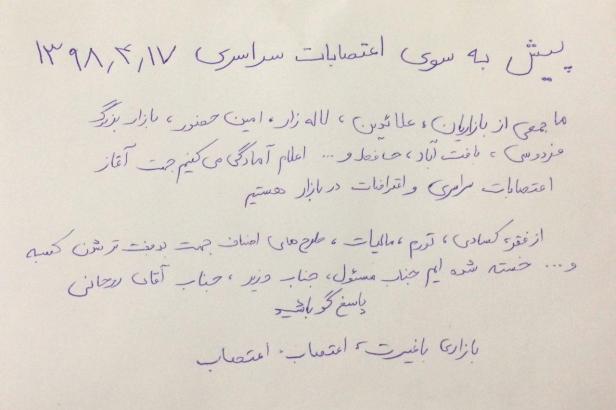 پیش به سوی اعتصابات سراسری ۱۳۹۸٫۴٫۱۷
ما جمعی از بازاریان، علائدین، لاله زار، امین حضور، بازار بزرگ
فردوسی، یافت آباد، حافظ و... اعلام آمادگی می کنیم جهت آغاز
اعتصابات سراسری و اعتراضات در بازار هستیم
از فقر، کسادی، تورم، مالیات، طرح های اصناف جهت بدبخت تر شدن کسبه
و... خسته شده ایم جناب مسئول، جناب وزیر، جناب آقای روحانی
پاسخ گو باشید
بازاری باغیرت، اعتصاب، اعتصاب